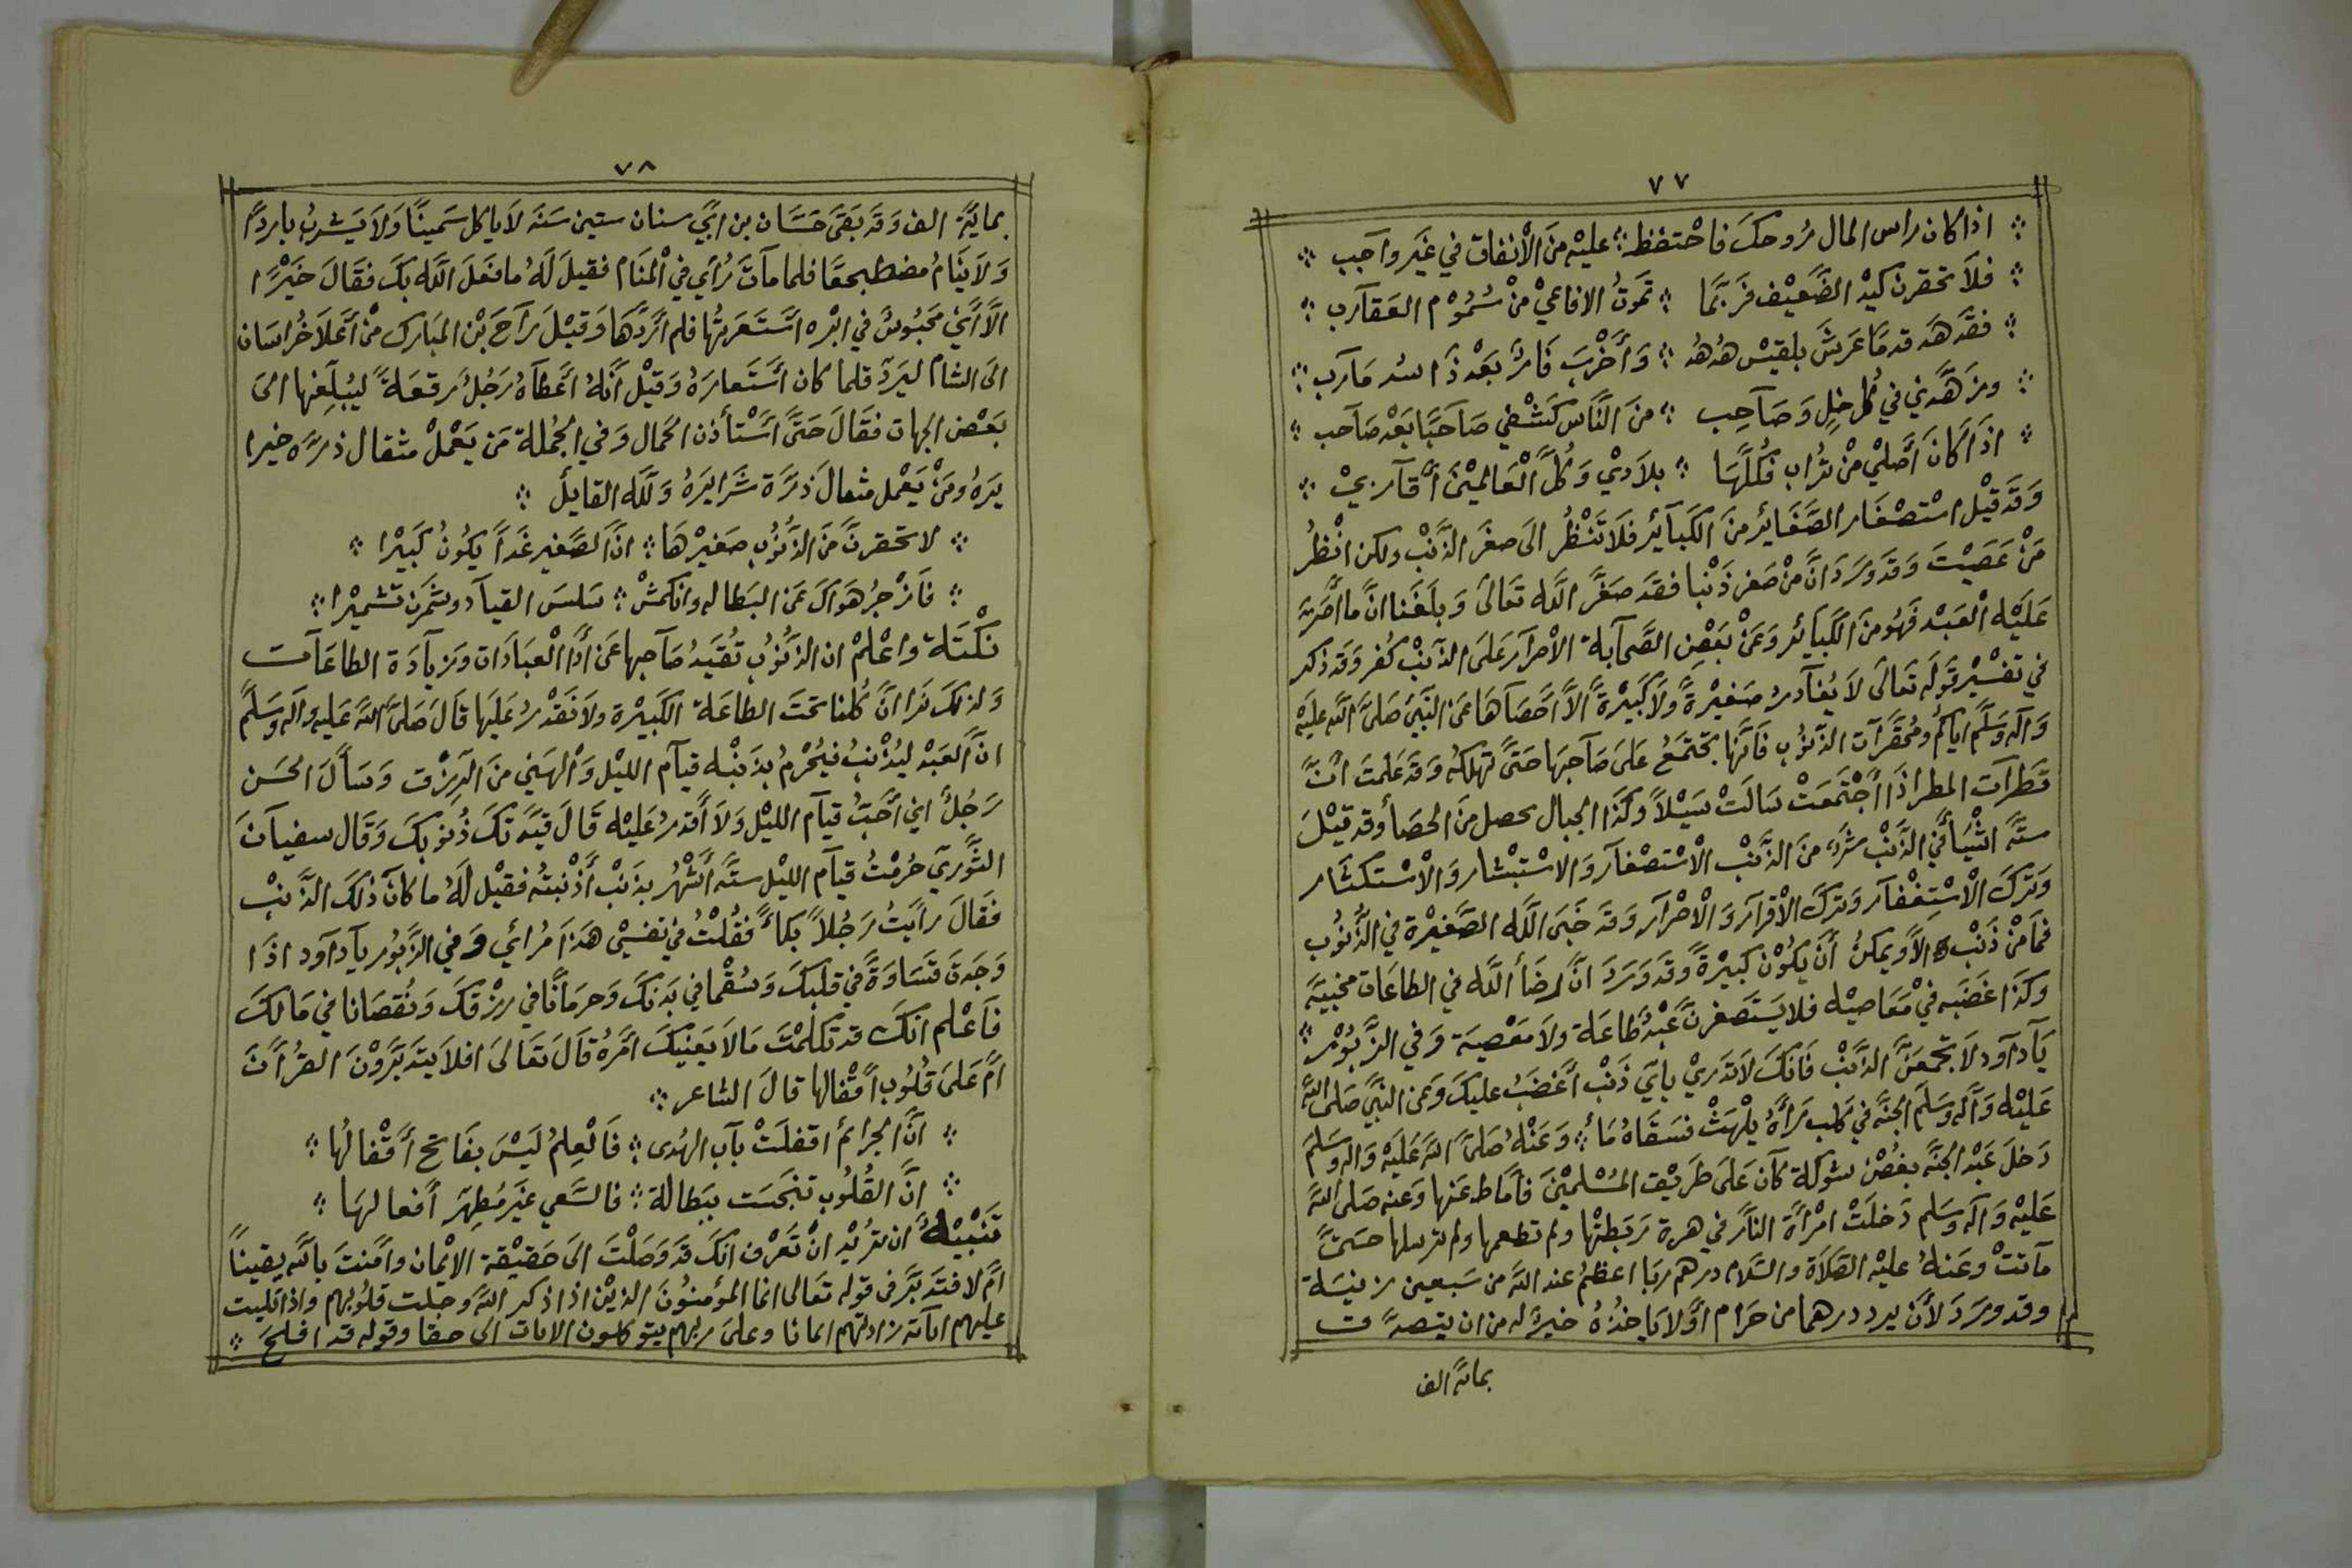 ٧٧
؞ اذا كان راس المال رُوحكَ فاحْتفظ ؞ عليْه منَ الْانفاق في غَير واجب ؞
؞ فلاَ تحقرن كيْد الضَّعيْف فرَبّما ؞ تموتُ الافاعيْ منْ سُمُوْم العَقارب ؞
؞ فقَد هَد قدمًا عَرشَ بلقيْس هُدهُد ؞ وَأَخْربَ فَارٌ بَعْد ذَا سُد مَارب ؞
؞ وزهَّدني في كُل خِلٍ وَصَاحِب ؞ منَ النَّاس كَشْفي صَاحبًا بَعْد صَاحب ؞
؞ اذَا كَانَ أَصْليْ منْ تُراب فكُلّهَا ؞ بلاَديْ وَكُلَّ الْعَالميْنَ أَقَاربيْ ؞
وَقَد قيْل استْصْغَار الصَّغَائِر منَ الكَبآئِر فلاَ تَنْظُر الىَ صغَر الذَّنْب ولكن انْظُر
مَنْ عَصَيْتَ وَقَد وَرَدَ انَّ منْ صَغر ذَنْبا فقَد صَغَّر اللَّه تَعَالىَ وَبلَغَنا انَّ ما أَصَرَّ
عَلَيْه الْعَبْد فَهُو منَ الكَبآئر وَعَنْ بَعْضِ الصَّحَابة الاصْرَار عَلىَ الذَّنْب كُفر وَقَد ذكر
في تفْسْير قَوله تَعالىَ لاَ يُغَادرُ صَغيْرةً ولاَ كَبيْرةً الاَّ أَحْصَاهَا عَن النَّبيّ صَلَّى اللَّه عليَه
وَآله وَسَلَّم اياكُم ومُحقَّرَات الذَّنوُب فَانَّها تجتَمعُ علىَ صَاحبَها حَتىَّ تهلكهُ وَقَد عَلمتَ انَّ
قَطَراَت المطر اذَا أجْتمَعَتْ سَالَتْ سَيْلاً وكذَا الجبال تحصل منَ الحصَا وقد قيْلَ
ستّه اشْيَا في الذَّنْب شرّ منَ الذَّنْب الْاسْتصْغَار وَالاسْتبْشار وَالْاسْتكثَار
وَتركَ الْاسْتِغْفَار وَتركَ الْاقْرار وَالْاصْرَار وَقَد خَبىَ اللَّه الصَّغيْرة في الذُّنوُب
فمَا منْ ذَنْب الاَّ ويمكنُ أَنْ يكُوْن كبيْرةً وَقَد وَرَدَ انَّ رضَا اللَّه في الطاعَات مخبيَّه
وكذَا غضَبه في مَعَاصيْه فلا يَسْتَصغرنَّ عَبْدٌ طَاعَة ولاَ معْصيَة وَفي الزَّبوُر ؞
يَادَاود لاَ تجمَعَنَّ الذَّنْب فَانكَ لاَ تَدريْ بايّ ذَنْب أَغضَبُ عليكَ وَعَن النَّبيَّ صَلى اللَّه
عَليْه وَآله وَسَلم الجنَّه في كلب رَآهُ يلْهَثْ فسَقَاهُ مَا ؞ وَعَنْهُ صَلىَّ اللَّه عَلَيْه وَاله وَسَلمَ
دَخلَ عَبْد الجنَّه بغُصْن شوكة كاَن عَلىَ طَريْق المسْلميْنَ فأَمَاط عَنها وَعنه صَلى اللَّه
عَليْه وَآله وَسَلم دَخلَتْ امْرأَة النَّار في هرة رَبَطتْها ولم تطعمها ولم ترسلها حَتىَّ
مَاتتْ وعَنهُ عليْه الصَّلاة والسَّلام درهم ربَا اعظمُ عند اللَّه من سَبعين زنيَة
وقد ورَدَ لأَن يرد درهما من حَرام أَوْلا يَاخذُهُ خيرٌ له من ان يتصدَّق
بمائة الف
٧٨
بمائة الف وَقَد بَقىَ حَسَّان بن ابيْ سنان ستين سَنَه لاَ ياكل سَمينًا وَلاَ يَشربُ باردًا
وَلاَ يَنَامُ مضطجعًا فلما مَاتَ رُأيَ في الْمنَام فقيلَ لَهُ ما فعَلَ اللَّه بكَ فقَالَ خَيْرًا
الاَّ أَنيّ محبُوسٌ في ابْره اسْتَعَرتُها فلم أَردَّهَا وَقيْلَ رَاحَ بْن المبَارك منْ أَعلاَ خُراسَان
الىَ الشام ليَردّ قلما كان أَسْتَعارَهُ وَقيْل أَنهُ أَعطَاهُ رَجُلٌ رقعَةً ليُبلّغها الىَ
بَعْض الجهات فقَالَ حَتىَّ أَسْتأذن الجمال وَفي الجُملة مَن يَعْملْ مثقال ذرَّه خيرا
يرَهُ ومَنْ يَعْمل مثقالَ ذرَّة شَرًا يرَهُ وَللَّه القايل ؞
؞ لا تحقرنَّ منَ الذُّنوُب صَغيْرهَا ؞ انَّ الصَّغير غَداً يكُونُ كَبيْرا ؞
؞ فَازْجرُ هَوَاكَ عَن البَطاله وانكمشْ ؞ سَلسَ القيَاد وشمَّرن تَشميْرا ؞
نكْتَة واعْلمْ ان الذُّنوُب تُقيّدُ صَاحبها عَن أَدَا الْعبَادَات وَزيَادَة الطاعَات
وَلذلكَ نَرا انَّ كُلنا تحتَ الطاعَة الكَبيْرة ولاَ نَقْدرُ عَليَها قَالَ صَلىَّ اللَّه عَليه وآله وَسَلم
انَّ العَبْد ليُذْنبُ فيُحْرمُ بذَنْبه قيَام الليْل وَالْهَني منَ الرِزْق وَسَألَ الحَسَن
رَجُلٌ اني أَحبّ قيَام الليْل وَلاَ أَقدرُ عَليْه قَالَ قيَّدتكَ ذُنوبكَ وَقَال سفيَانَ
الثَّوريّ حُرمْتُ قيَام الليْل ستَّه أَشْهُر بذَنْب أَذْنبتُه فقيْل لَهُ ما كانَ ذلكَ الذَّنبْ
فقَالَ رأَيتُ رَجُلاً بكَّاءً فقُلْتُ في نَفسْي هَذَا مُرائي وَفي الزَّبُور يَاداوَد اذَا
وَجَدتَ قسَاوَةً في قلبكَ وَسُقْما في بَدنكَ وَحرمَانًا في رزْقكَ وَنُقصَانا في مَالكَ
فَاعْلم انكَ قد تكلمْتَ مَالاَ يَعنيكَ امَّرهُ قَالَ تَعَالىَ افلاَ يتَدبَّروْنَ القرُأنَ
امْ عَلىَ قُلُوب أَقْفالها قالَ الشاعر ؞
؞ انَّ الجرائم اقفلَتْ بَاب الهُدى ؞ فَالْعِلمُ لَيْسَ بفَاتح أَقْفالُها ؞
؞ انَّ القُلُوب تنجسَت ببَطالة ؞ فالسَّعي غَير مُطهرّ أَفعالهَا ؞
تَنْبيْهٌ ان تُريْد انْ تَعَرْف انكَ قَد وَصَلْتَ الىَ حَقيْقة الايْمان وآمَنتَ باللَّه يقيناً
امْ لا فتَدبَّر في قوله تعَالى انما المؤْمنُونَ الذيْن اذا ذكر اللَّه وَجلت قلُوبهم واذا تليت
عليهم اياته زادتهم ايمانا وعلىَ ربهم يتوكلون الايات الى حقا وقوله قد افلحَ ؞